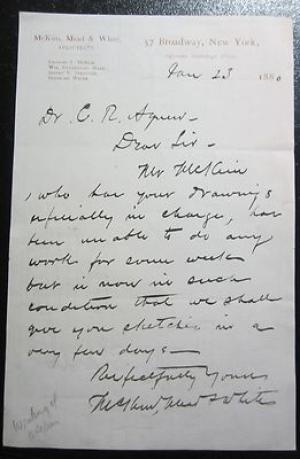 McKim, Mead & White,
ARCHITECTS
57 Broadway, New York,
Charles F. McKim
Wm. Rutherford Mead
Joseph M. Wells
Stanford White
Jan 23 1880
Dr. C. R. Agnew -
Dear Sir -
Mr McKim
, who has your drawings
especially in charge, has
been unable to do any
work for some weeks
but is now in such
condition that we shall
give you sketches in a
very few days -
Respectfully Yours
McKim, Mead & White